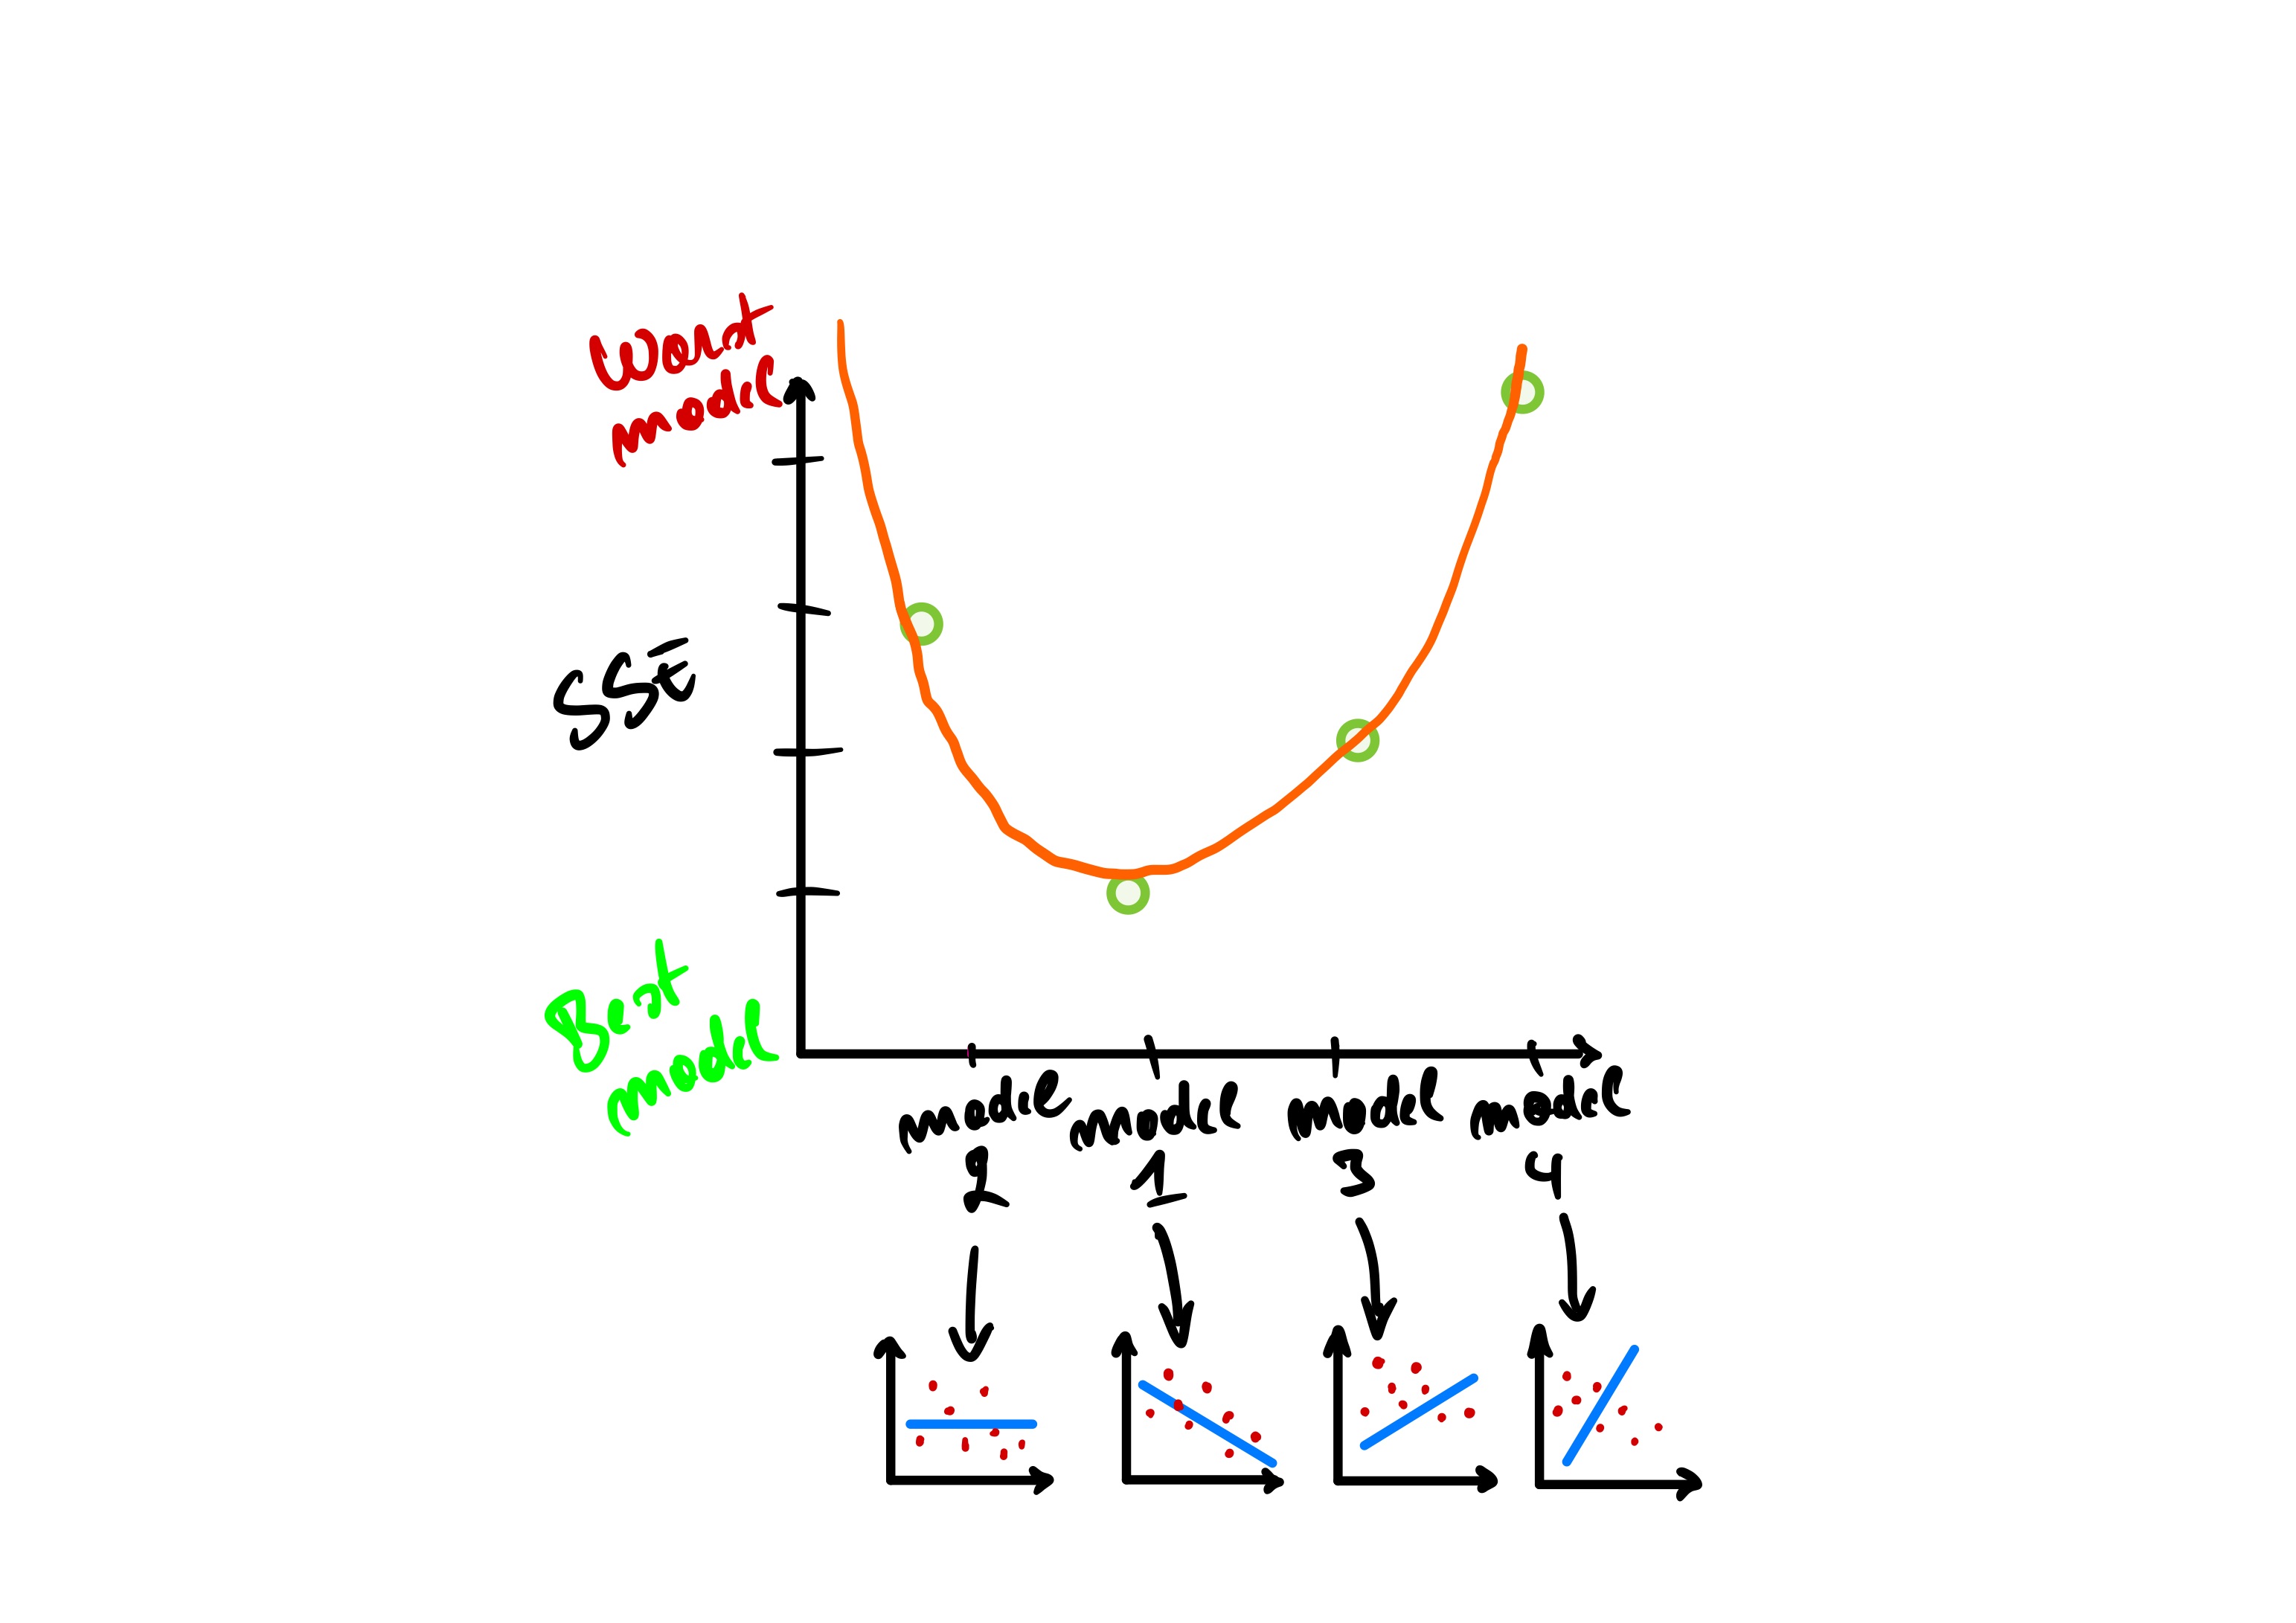 Worst
model
SSE
Best
model
model
2
model
1
model
3
model
4